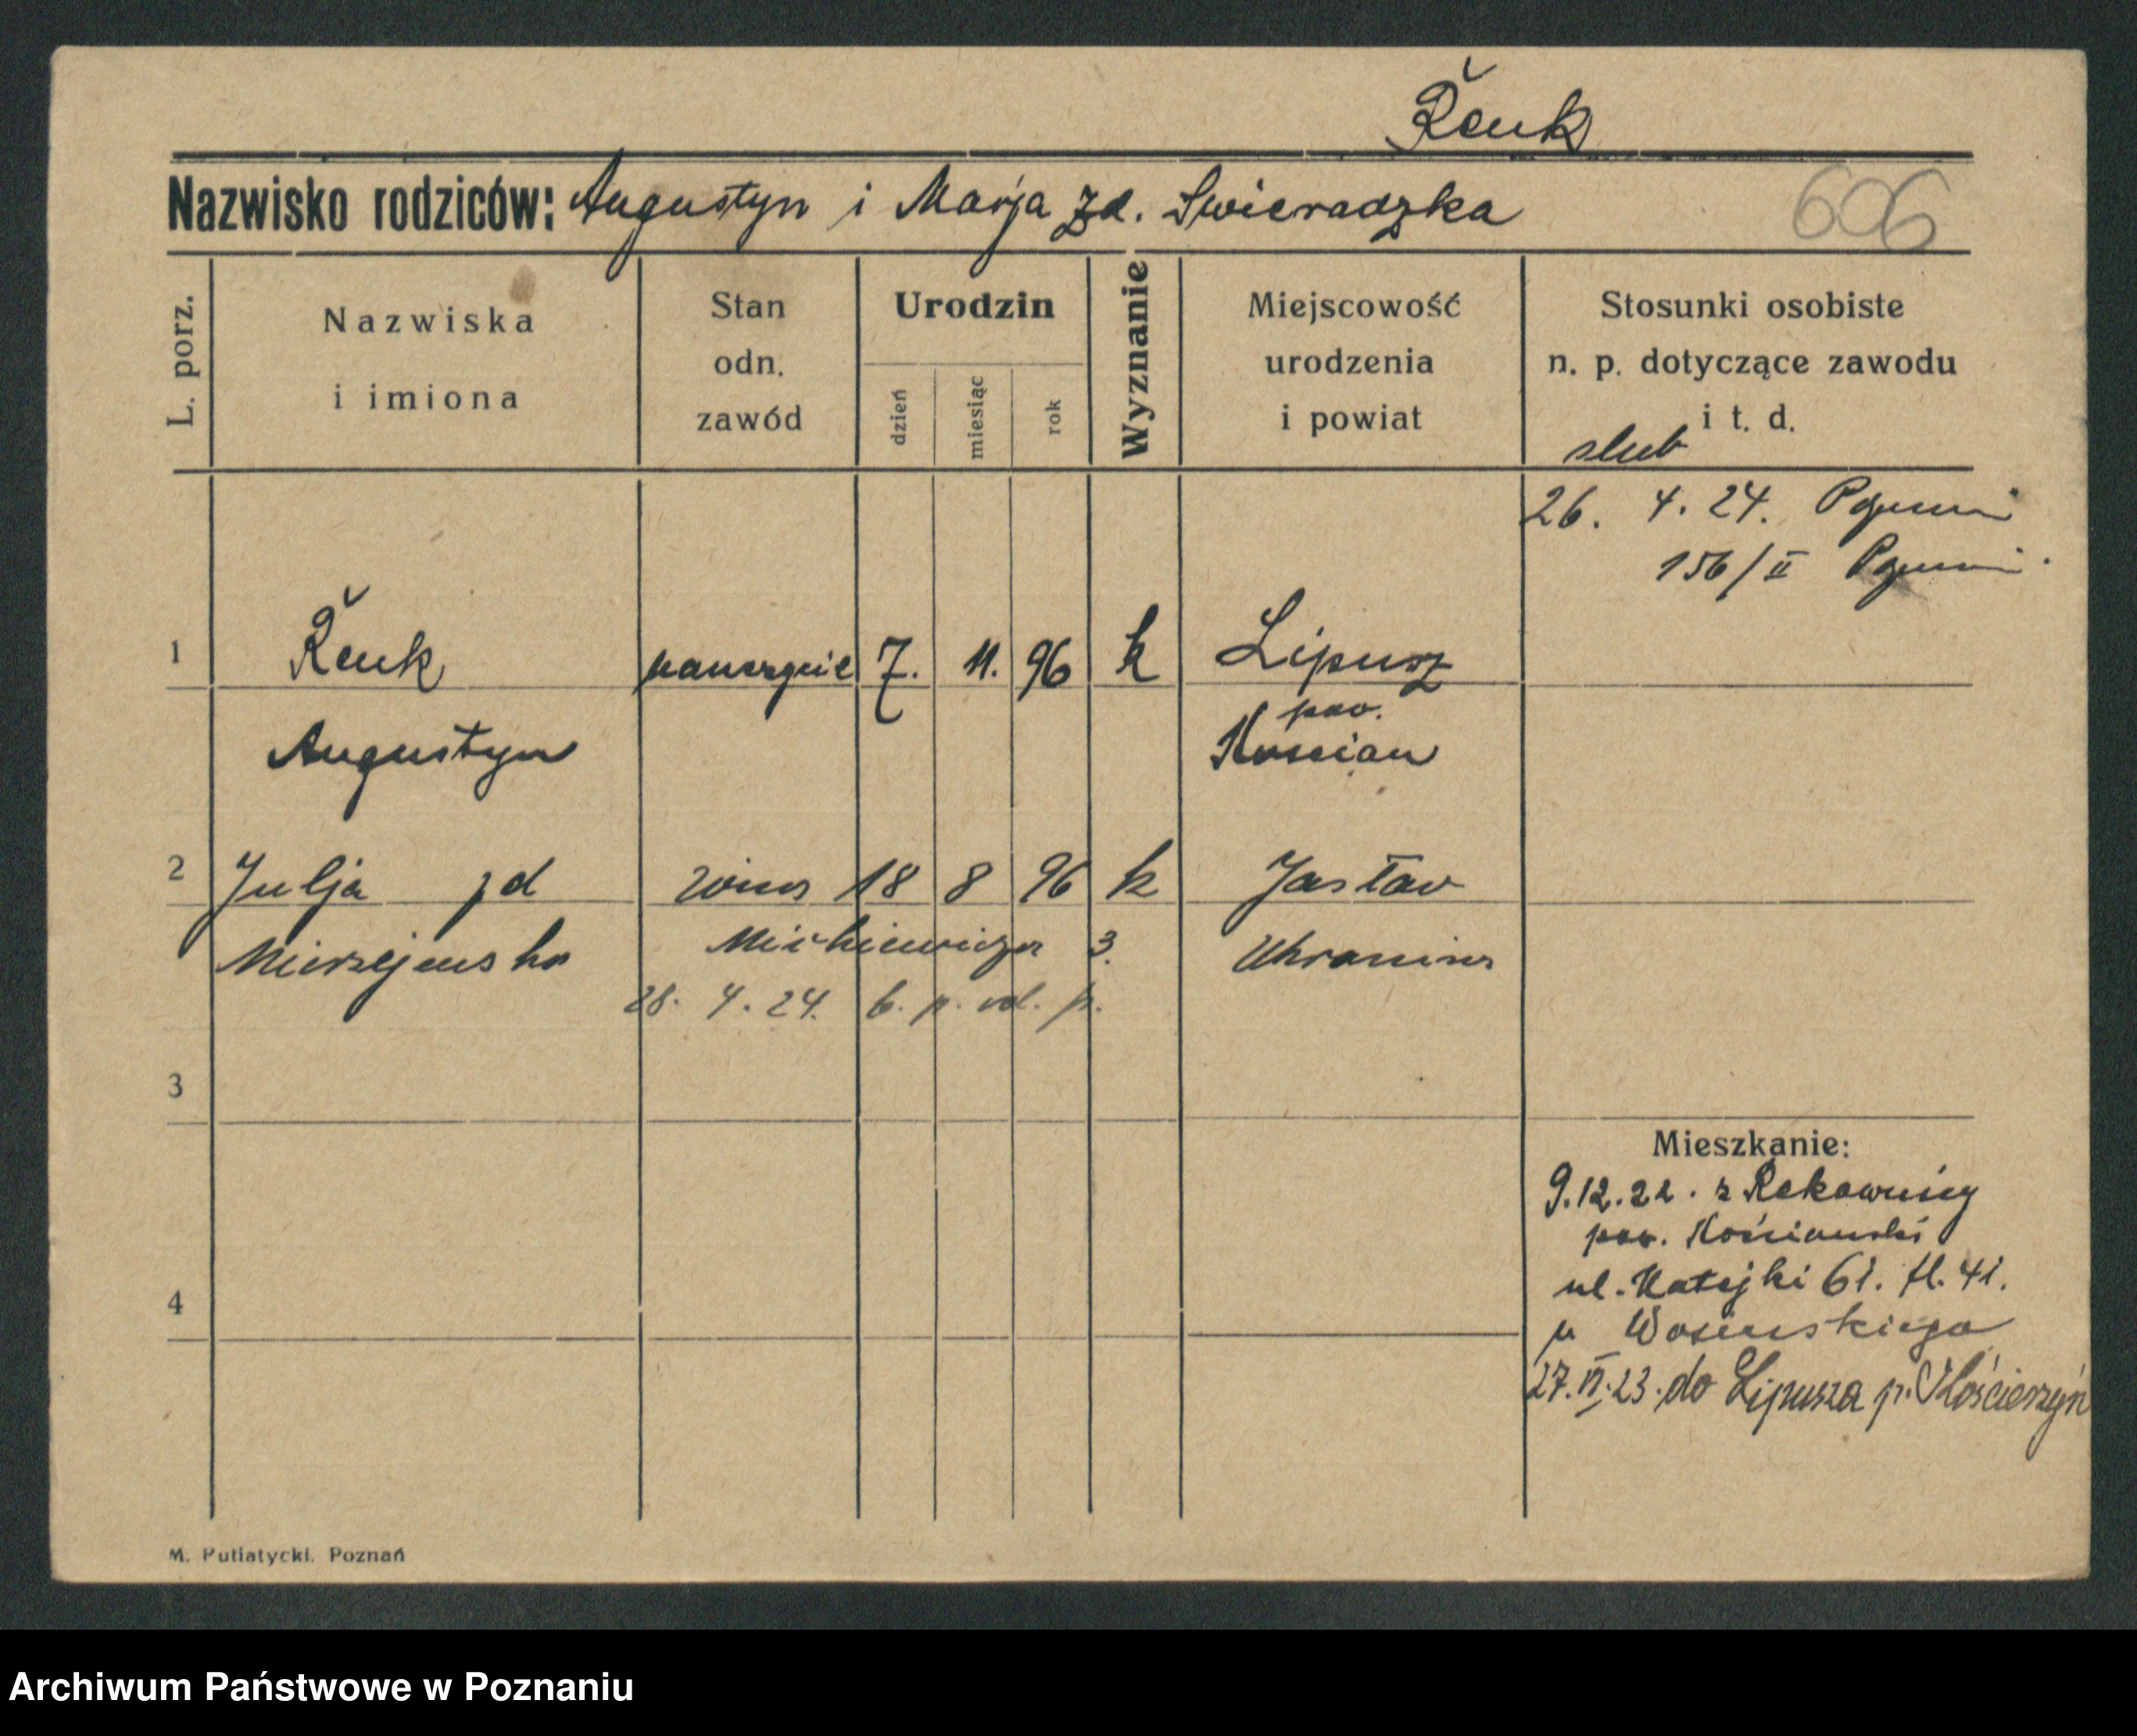 Řeuk
Nazwisko rodziców: Augustyn i Marja zd. Swieradzka
606
L. porz.
Nazwiska
i imiona
Stan
odn.
zawód
Urodzin
dzień
miesiąc
rok
Wyznanie
Miejscowość
urodzenia
i powiat
Stosunki osobiste
n. p. dotyczące zawodu
i t. d.
slub
26. 4. 24.
156/II
1 Řeuk 7. 11. 96 k Lipusz
pow.
Augustyn Kościan
2 Julja zd żona 18 8 96 k Jasław
Mierzejewska Mickiewicza 3. Ukraina
28. 4. 24. b. p. vol. p.
3
Mieszkanie:
9.12.22. z Rekownicy
pow. Kościański
ul. Matejki 61. fl. 41.
4
u Wosińskiego
27.VI.23. do Lipusza p. Kościerzyn
M. Putiatycki. Poznań
Archiwum Państwowe w Poznaniu